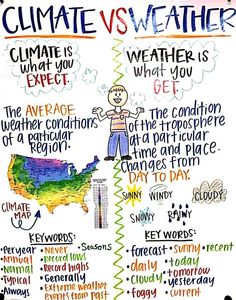 CLIMATE VS WEATHER
CLIMATE IS
what you
EXPECT.
WEATHER IS
what you
GET.
The AVERAGE
weather conditions
of a particular
Region.
CLIMATE
MAP
The condition
of the troposphere
at a particular
time and place.
Changes from
DAY TO DAY.
SUNNY WINDY CLOUDY
SNOWY RAINY
KEYWORDS:
• Per year
• Annual
• Normal
• Typical
• Always
• Never
• Record lows
• Record highs
• Generally
• Extreme weather
events from past
• Seasons
KEYWORDS:
• forecast
• daily
• hot
• cloudy
• foggy
• sunny
• today
• tomorrow
• yesterday
• current
• recent